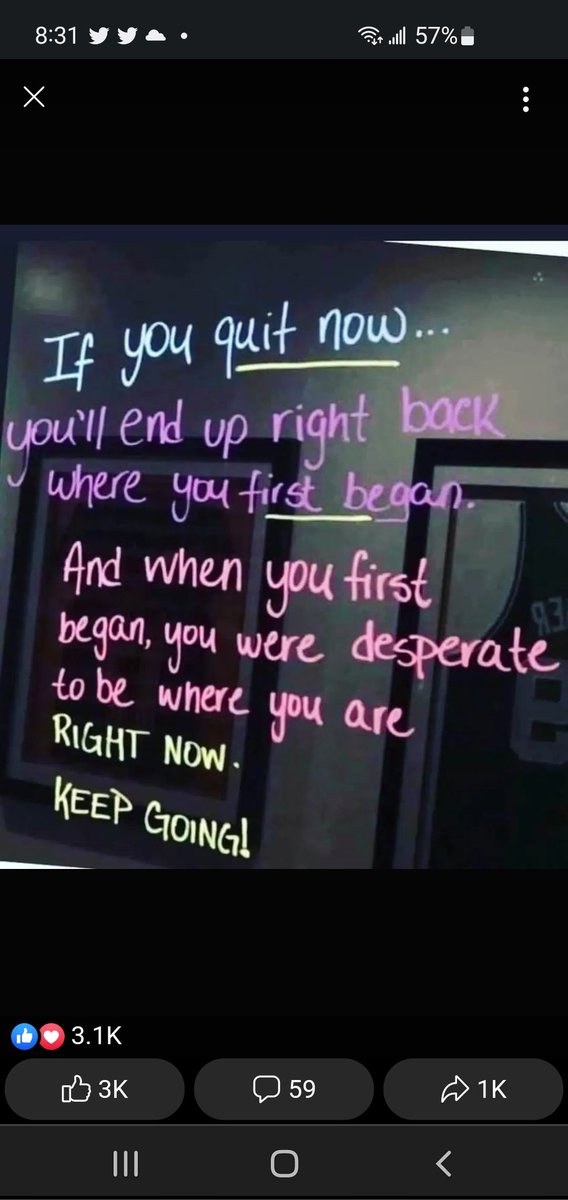 8:31
57%
If you quit now...
you'll end up right back
where you first began.
And when you first
began, you were desperate
to be where you are
RIGHT NOW.
KEEP GOING!
3.1K
3K
59
1K